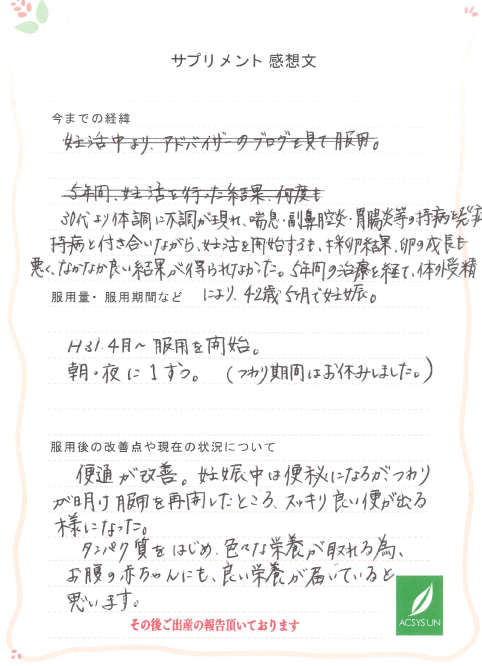 サプリメント 感想文
今までの経緯
妊活中より、アドバイザーのブログを見て服用。
5年間、妊活を行った結果、何度も
30代より体調に不調が現れ、喘息・副鼻腔炎・胃腸炎等の持病を発症
持病と付き合いながら、妊活を開始するも、採卵結果、卵の成長も
悪く、なかなか良い結果が得られなかった。5年間の治療を経て、体外受精
服用量・服用期間など により、42歳5ヶ月で妊娠。
H31.4月〜 服用を開始。
朝・夜に1ずつ。 (つわり期間はお休みしました。)
服用後の改善点や現在の状況について
便通が改善。妊娠中は便秘になるが、つわり
が明け服用を再開したところ、スッキリ良い便が出る
様になった。
タンパク質をはじめ、色々な栄養が取れる為、
お腹の赤ちゃんにも、良い栄養が届いていると
思います。
その後ご出産の報告頂いております
ACSYSUN